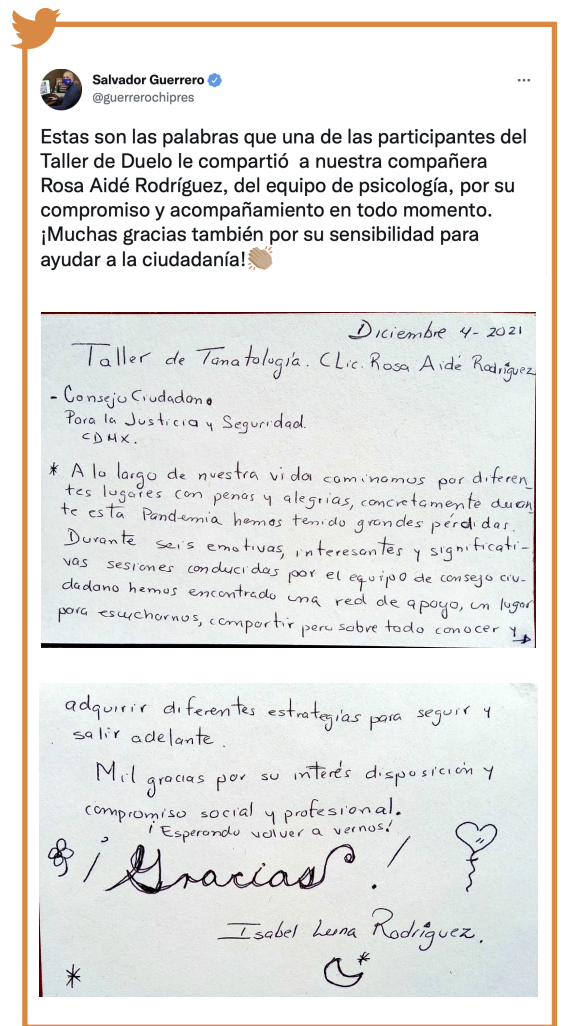 Salvador Guerrero
@guerrerochipres
Estas son las palabras que una de las participantes del
Taller de Duelo le compartió a nuestra compañera
Rosa Aidé Rodríguez, del equipo de psicología, por su
compromiso y acompañamiento en todo momento.
¡Muchas gracias también por su sensibilidad para
ayudar a la ciudadanía!👏🏽
Diciembre 4-2021
Taller de Tanatología. CLic. Rosa Aidé Rodríguez
- Consejo Ciudadano
Para la Justicia y Seguridad.
CDMX.
* A lo largo de nuestra vida caminamos por diferen
tes lugares con penas y alegrias, concretamente duran
te esta Pandemia hemos tenido grandes pérdidas.
Durante seis emotivas, interesantes y significati-
vas sesiones conducidas por el equipo de consejo ciu-
dadano hemos encontrado una red de apoyo, un lugar
para escucharnos, compartir pero sobre todo conocer y
adquirir diferentes estrategías para seguir y
salir adelante.
Mil gracias por su interés disposición y
compromiso social y profesional.
¡Esperando volver a vernos!
¡Gracias!
Isabel Luna Rodríguez.